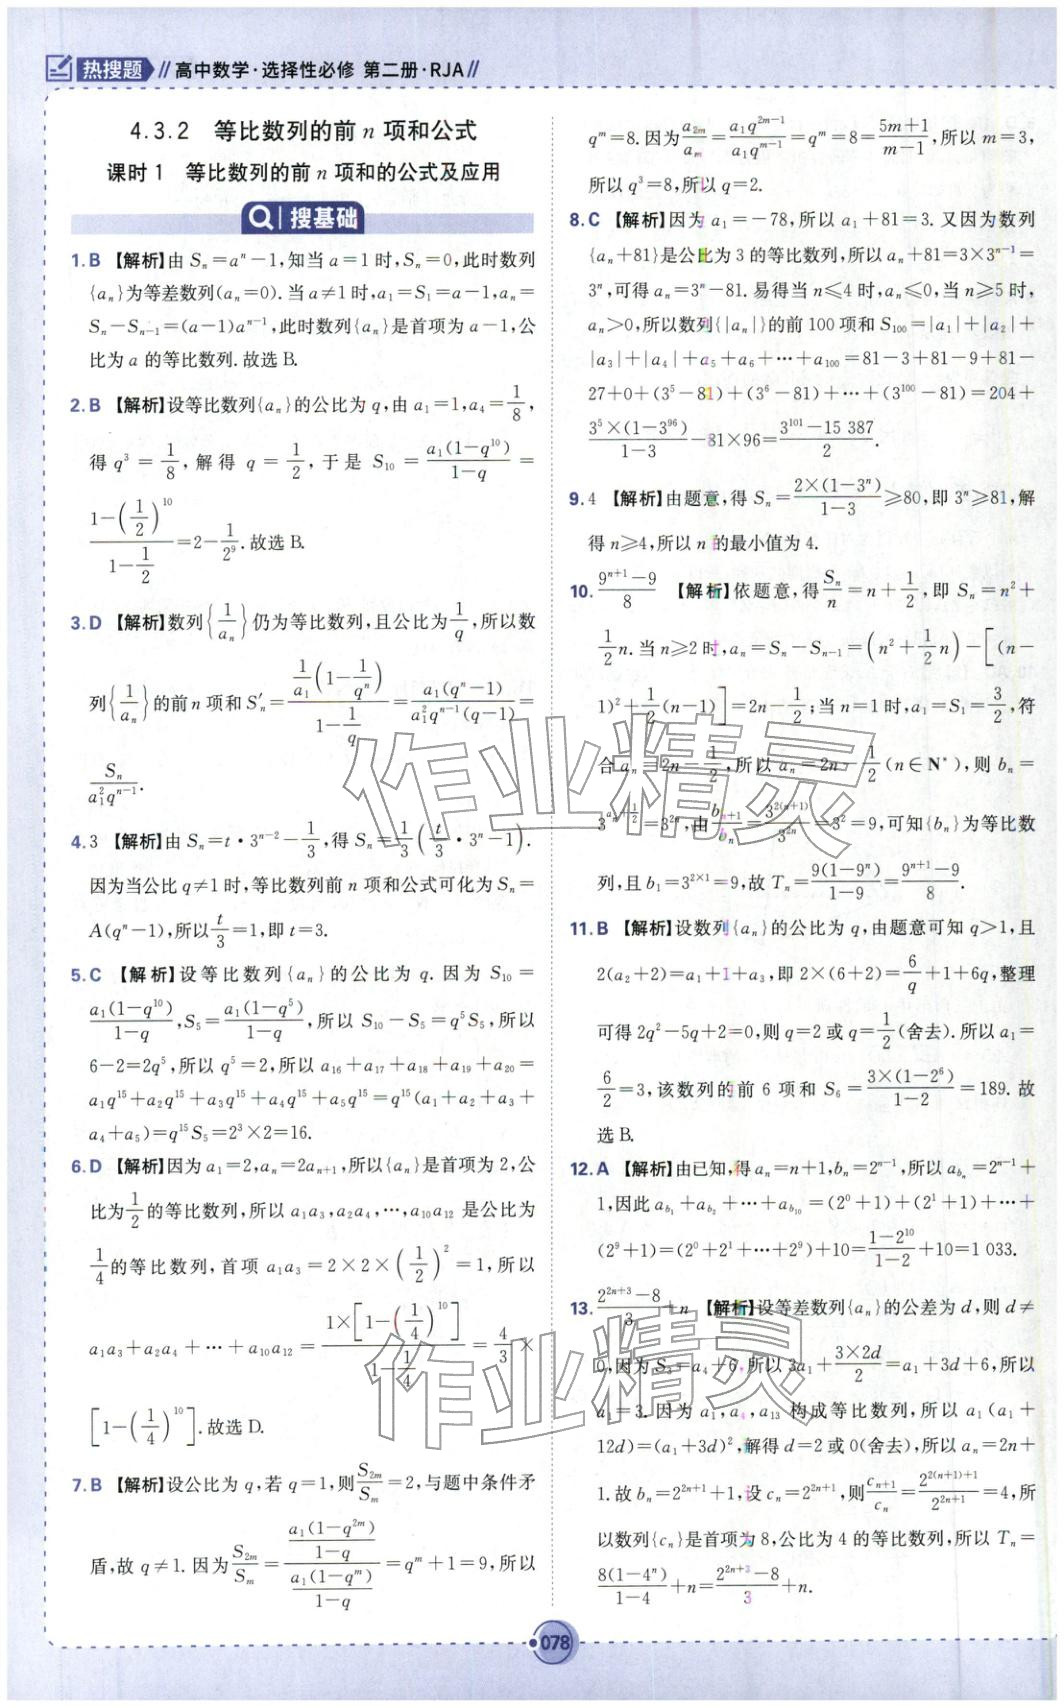 热搜题 // 高中数学·选择性必修 第二册·RJA //
4.3.2 等比数列的前 n 项和公式
课时1 等比数列的前 n 项和的公式及应用
搜基础
1.B 【解析】由 Sₙ=aⁿ-1,知当 a=1 时,Sₙ=0,此时数列
{aₙ}为等差数列(aₙ=0).当 a≠1 时,a₁=S₁=a-1,aₙ=
Sₙ-Sₙ₋₁=(a-1)aⁿ⁻¹,此时数列{aₙ}是首项为 a-1,公
比为 a 的等比数列.故选 B.
2.B 【解析】设等比数列{aₙ}的公比为 q,由 a₁=1,a₄=1/8,
得 q³=1/8,解得 q=1/2,于是 S₁₀=a₁(1-q¹⁰)/(1-q)=
[1-(1/2)¹⁰]/(1-1/2)=2-1/2⁹.故选 B.
3.D 【解析】数列{1/aₙ}仍为等比数列,且公比为1/q,所以数
列{1/aₙ}的前 n 项和 S′ₙ=[1/a₁(1-1/qⁿ)]/(1-1/q)=a₁(qⁿ-1)/[a₁²qⁿ⁻¹(q-1)]=
Sₙ/(a₁²qⁿ⁻¹).
4.3 【解析】由 Sₙ=t·3ⁿ⁻²-1/3,得 Sₙ=1/3(t/3·3ⁿ-1).
因为当公比 q≠1 时,等比数列前 n 项和公式可化为 Sₙ=
A(qⁿ-1),所以t/3=1,即 t=3.
5.C 【解析】设等比数列{aₙ}的公比为 q.因为 S₁₀=
a₁(1-q¹⁰)/(1-q),S₅=a₁(1-q⁵)/(1-q),所以 S₁₀-S₅=q⁵S₅,所以
6-2=2q⁵,所以 q⁵=2,所以 a₁₆+a₁₇+a₁₈+a₁₉+a₂₀=
a₁q¹⁵+a₂q¹⁵+a₃q¹⁵+a₄q¹⁵+a₅q¹⁵=q¹⁵(a₁+a₂+a₃+
a₄+a₅)=q¹⁵S₅=2³×2=16.
6.D 【解析】因为 a₁=2,aₙ=2aₙ₊₁,所以{aₙ}是首项为 2,公
比为1/2的等比数列,所以 a₁a₃,a₂a₄,…,a₁₀a₁₂ 是公比为
1/4的等比数列,首项 a₁a₃=2×2×(1/2)²=1,所以
a₁a₃+a₂a₄+…+a₁₀a₁₂=1×[1-(1/4)¹⁰]/(1-1/4)=4/3×
[1-(1/4)¹⁰].故选 D.
7.B 【解析】设公比为 q,若 q=1,则S₂ₘ/Sₘ=2,与题中条件矛
盾,故 q≠1.因为S₂ₘ/Sₘ=[a₁(1-q²ᵐ)/(1-q)]/[a₁(1-qᵐ)/(1-q)]=qᵐ+1=9,所以
qᵐ=8.因为a₂ₘ/aₘ=a₁q²ᵐ⁻¹/a₁qᵐ⁻¹=qᵐ=8=(5m+1)/(m-1),所以 m=3,
所以 q³=8,所以 q=2.
8.C 【解析】因为 a₁=-78,所以 a₁+81=3.又因为数列
{aₙ+81}是公比为 3 的等比数列,所以 aₙ+81=3×3ⁿ⁻¹=
3ⁿ,可得 aₙ=3ⁿ-81.易得当 n≤4 时,aₙ≤0,当 n≥5 时,
aₙ>0,所以数列{|aₙ|}的前 100 项和 S₁₀₀=|a₁|+|a₂|+
|a₃|+|a₄|+a₅+a₆+…+a₁₀₀=81-3+81-9+81-
27+0+(3⁵-81)+(3⁶-81)+…+(3¹⁰⁰-81)=204+
3⁵×(1-3⁹⁶)/(1-3)-81×96=(3¹⁰¹-15 387)/2.
9.4 【解析】由题意,得 Sₙ=2×(1-3ⁿ)/(1-3)≥80,即 3ⁿ≥81,解
得 n≥4,所以 n 的最小值为 4.
10.(9ⁿ⁺¹-9)/8 【解析】依题意,得Sₙ/n=n+1/2,即 Sₙ=n²+
1/2n.当 n≥2 时,aₙ=Sₙ-Sₙ₋₁=(n²+1/2n)-[(n-
1)²+1/2(n-1)]=2n-1/2;当 n=1 时,a₁=S₁=3/2,符
合 aₙ=2n-1/2,所以 aₙ=2n-1/2(n∈N*),则 bₙ=
3^(aₙ+1/2)=3²ⁿ,由bₙ₊₁/bₙ=3²⁽ⁿ⁺¹⁾/3²ⁿ=3²=9,可知{bₙ}为等比数
列,且 b₁=3²ˣ¹=9,故 Tₙ=9(1-9ⁿ)/(1-9)=(9ⁿ⁺¹-9)/8.
11.B 【解析】设数列{aₙ}的公比为 q,由题意可知 q>1,且
2(a₂+2)=a₁+1+a₃,即 2×(6+2)=6/q+1+6q,整理
可得 2q²-5q+2=0,则 q=2 或 q=1/2(舍去).所以 a₁=
6/2=3,该数列的前 6 项和 S₆=3×(1-2⁶)/(1-2)=189.故
选 B.
12.A 【解析】由已知,得 aₙ=n+1,bₙ=2ⁿ⁻¹,所以 a_bₙ=2ⁿ⁻¹+
1,因此 a_b₁+a_b₂+…+a_b₁₀=(2⁰+1)+(2¹+1)+…+
(2⁹+1)=(2⁰+2¹+…+2⁹)+10=(1-2¹⁰)/(1-2)+10=1 033.
13.(2²ⁿ⁺³-8)/3+n 【解析】设等差数列{aₙ}的公差为 d,则 d≠
0,因为 S₃=a₄+6,所以 3a₁+3×2d/2=a₁+3d+6,所以
a₁=3.因为 a₁,a₄,a₁₃ 构成等比数列,所以 a₁(a₁+
12d)=(a₁+3d)²,解得 d=2 或 0(舍去),所以 aₙ=2n+
1.故 bₙ=2²ⁿ⁺¹+1,设 cₙ=2²ⁿ⁺¹,则cₙ₊₁/cₙ=2²⁽ⁿ⁺¹⁾⁺¹/2²ⁿ⁺¹=4,所
以数列{cₙ}是首项为 8,公比为 4 的等比数列,所以 Tₙ=
8(1-4ⁿ)/(1-4)+n=(2²ⁿ⁺³-8)/3+n.
作业精灵
作业精灵
078